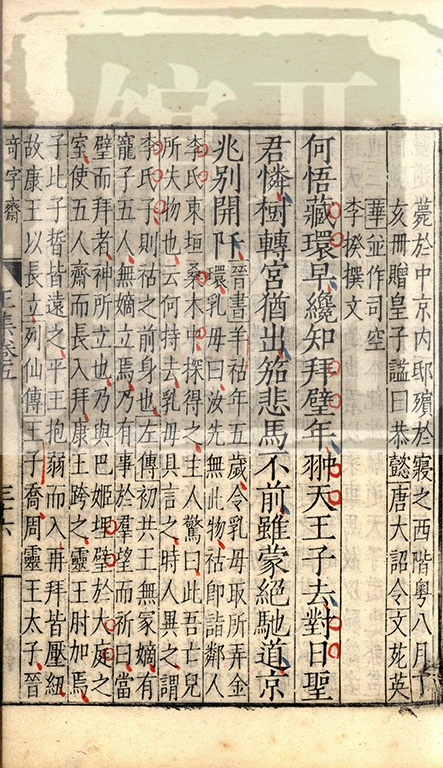 薨於中京內邸殯於寢之西階粵八月丁
亥冊贈皇子謚曰恭懿唐大詔令文苑英
華並作司空
李揆撰文
何悟藏環早纔知拜璧年翀天王子去對日聖
君憐樹轉宮猶出笳悲馬不前雖蒙絕馳道京
兆別開阡環晉書羊祜年五歲令乳母取所弄金
環乳母曰汝先無此物祜即詣鄰人
李氏東垣桑木中探得之主人驚曰此吾亡兒
所失物也云何持去乳母具言之時人異之謂
李氏子則祜之前身也左傳初共王無冢嫡有
寵子五人無嫡立焉乃有事於羣望而祈曰當
璧而拜者神所立也乃與巴姬埋璧於大庭之
室使五人齋而長入拜康王跨之靈王肘加焉
子此子晳皆遠之平王抱弱而入再拜皆壓紐
故康王以長立列仙傳王子喬周靈王太子晉
奇字齋 王集卷五 三十六